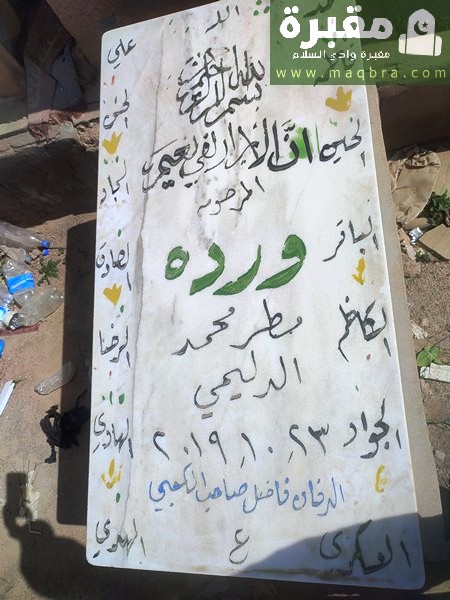 مقبرة
مقبرة وادي السلام
www.maqbra.com
الله
علي
بسم الله الرحمن الرحيم
الحسن
الحسين
ان الابرار لفي نعيم
المرحومه
الباقر
ورده
الصادق
الكاظم
مطر محمد
الرضا
الدليمي
الجواد
٢٠١٩.١٠.٢٣
الهادي
الدفان فاضل صاحب الكعبي
العسكري
ع
المهدي